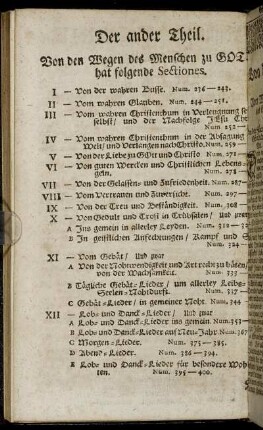 Der ander Theil.
Von den Wegen des Menschen zu GOTT
hat folgende Sectiones.
I — Von der wahren Busse. Num. 236 — 243.
II — Vom wahren Glauben. Num. 244 — 251.
III — Vom wahren Christenthum in Verleugnung
selbst/ und der Nachfolge JEsu Chr
Num 252 —
IV — Vom wahren Christenthum in der Absagung
Welt/ und Verlangen nach Christo. Num. 259
V — Von der Liebe zu GOtt und Christo Num. 271 —
VI — Von guten Wercken und Christlichen Lebens-
Num. 278
VII — Von der Gelassen- und Zufriedenheit. Num. 287 —
VIII — Vom Vertrauen und Zuversicht. Num. 297 —
IX — Von der Treu und Beständigkeit. Num. 308 —
X — Von Gedult und Trost in Trübsalen/ Und zwar
A Ins gemein in allerley Leyden. Num. 312 —
B In geistlichen Anfechtungen/ Kampf und
Num. 324
XI — Vom Gebät/ Und zwar
A Von der Nothwendigkeit und Art recht zu bäten/
von der Wachsamkeit. Num. 333
B Tägliche Gebät-Lieder/ um allerley Leibs-
Seelen-Nohtdurft. Num. 337 —
C Gebät-Lieder/ in gemeiner Noht. Num. 344
XII — Lob- und Danck-Lieder/ Und zwar
A Lob- und Danck-Lieder ins gemein. Num. 353 —
B Lob- und Danck-Lieder auf Neu-Jahr Num. 367
C Morgen-Lieder. Num. 375 — 385.
D Abend-Lieder. Num. 386 — 394.
E Lob- und Danck-Lieder für besondere Wohl-
ten. Num. 395 — 400.